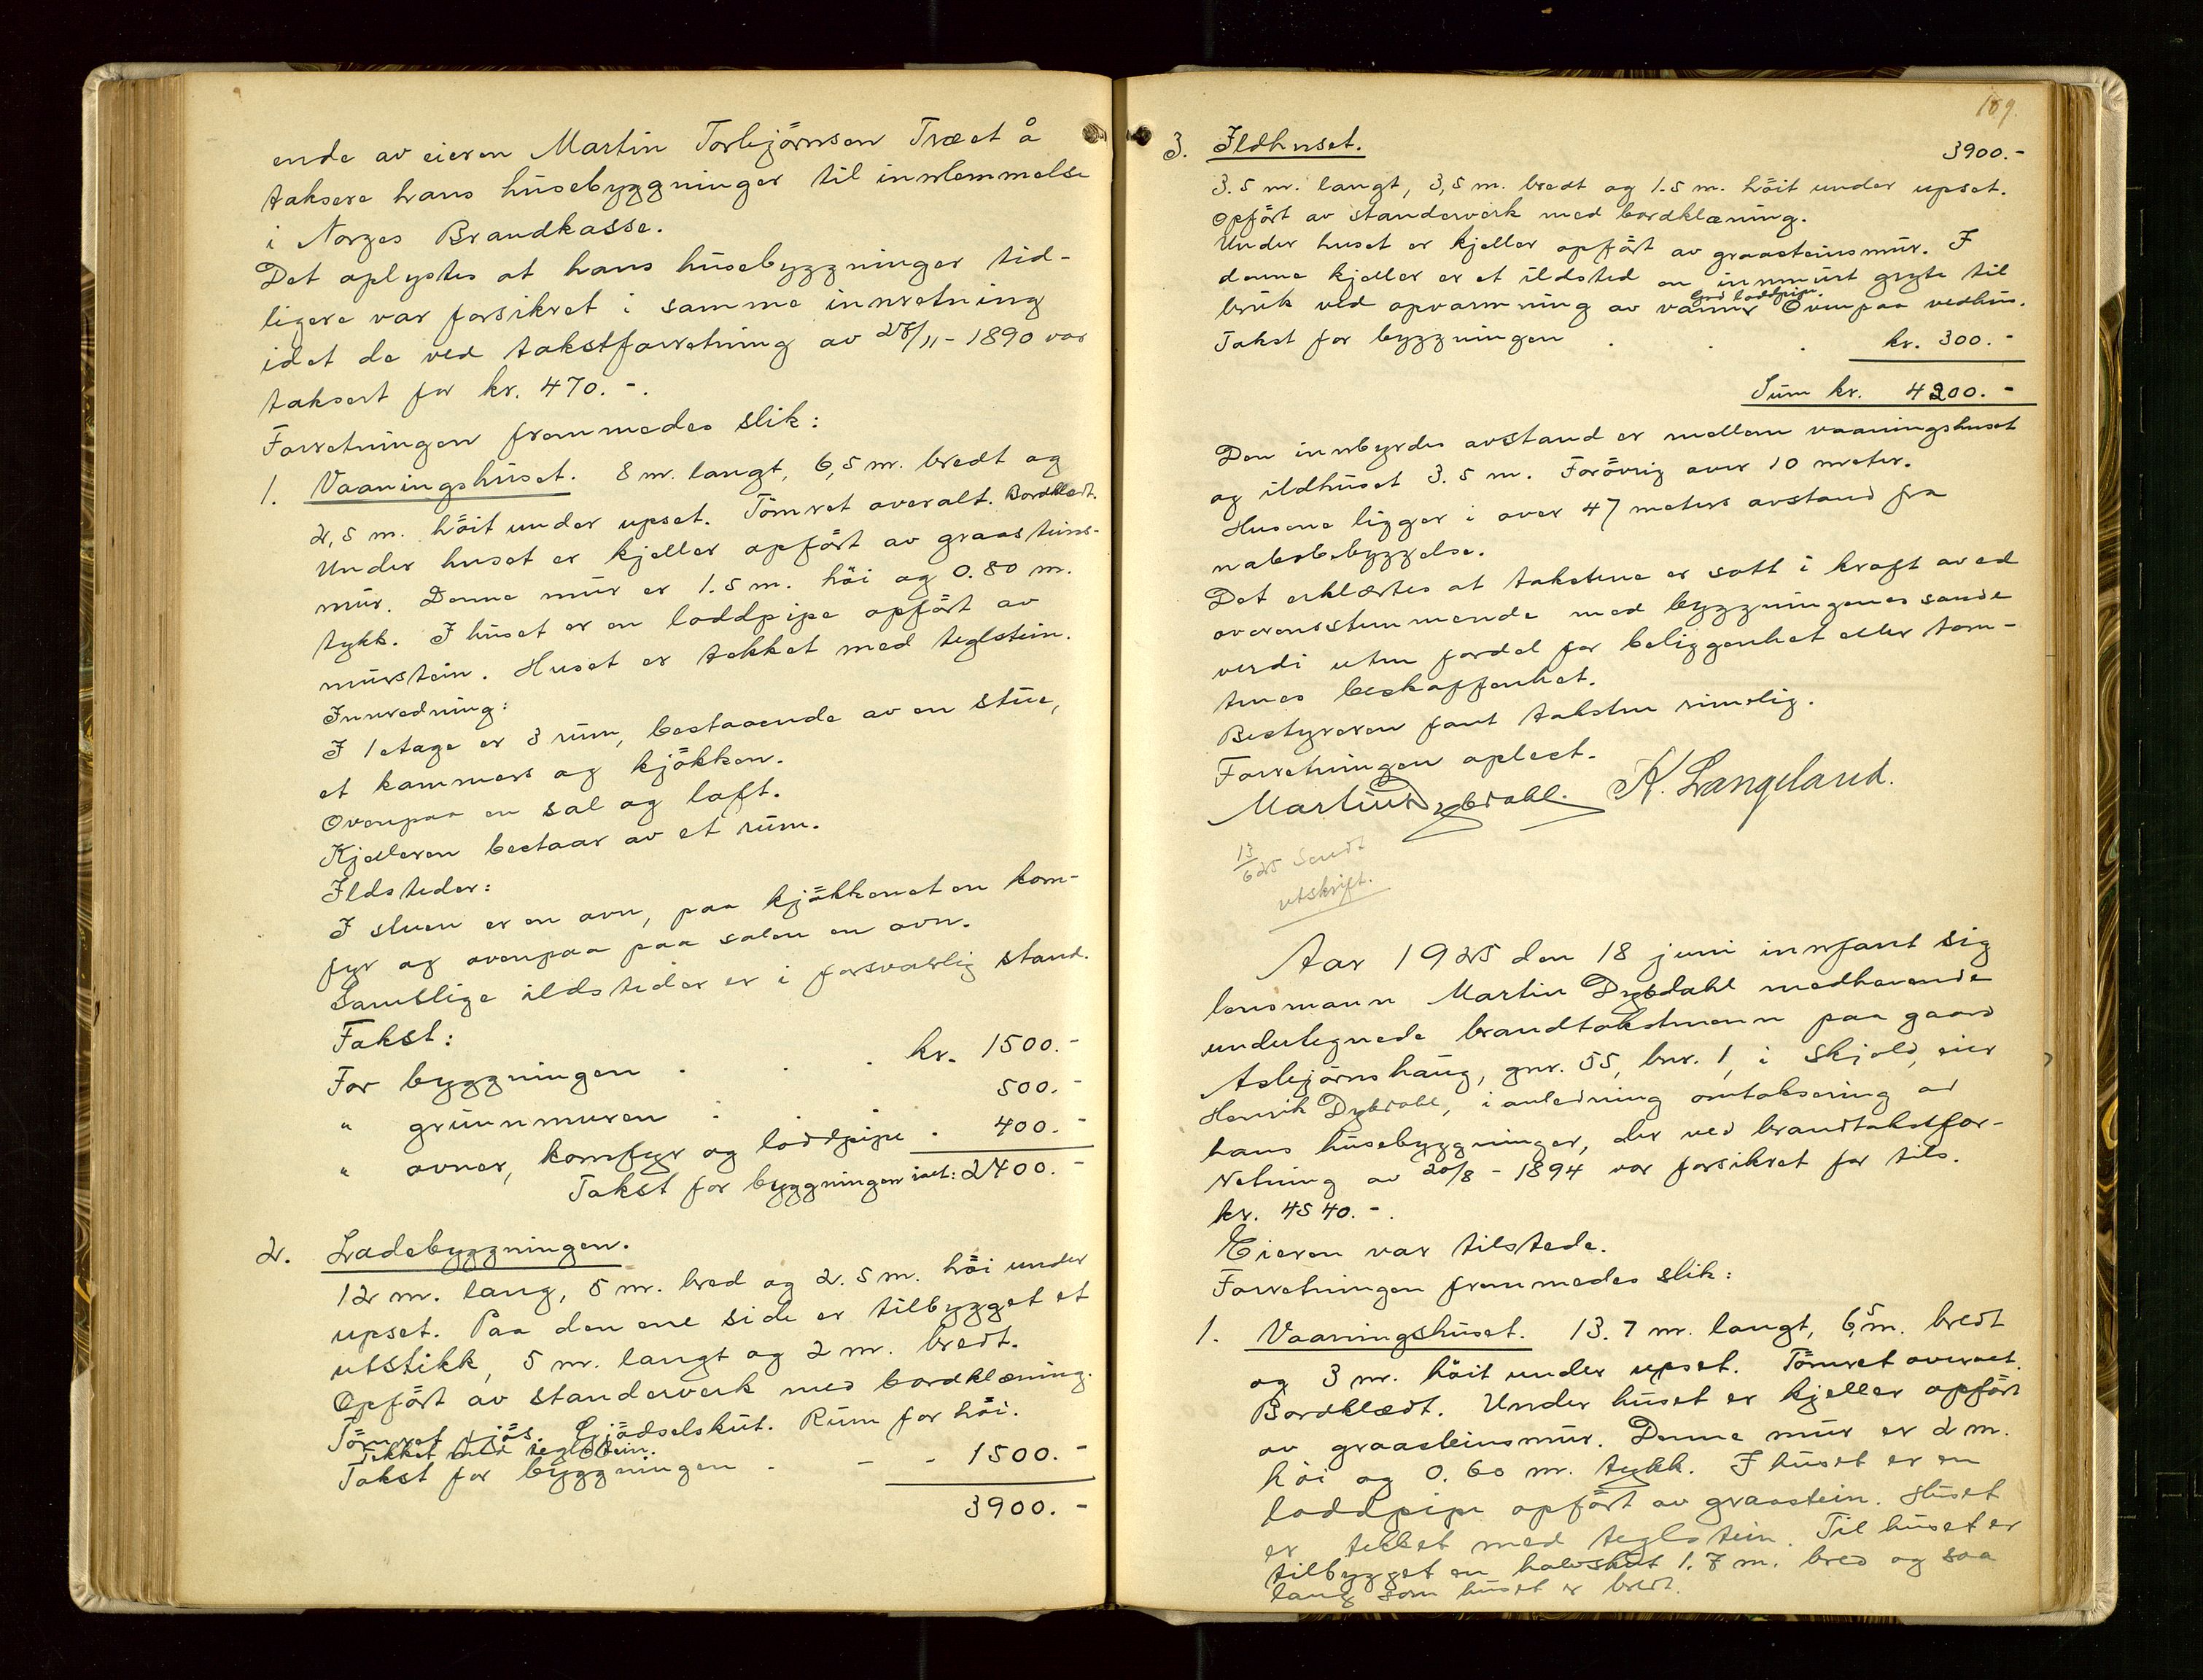 ende av eieren Martin Torbjörnsen Træet å
taksere hans husebyggninger til innlemmelse
i Norges Brandkasse.
Det oplystes at hans husebyggninger tid-
ligere var forsikret i samme innretning
idet de ved takstforretning av 28/11-1890 var
taksert for kr. 470.-.
Forretningen fremmedes slik:
1. Vaaningshuset. 8 m. langt, 6,5 m. bredt og
2,5 m. höit under upset. Tömret overalt. Bordklædt.
Under huset er kjeller opfört av graasteins-
mur. Denne mur er 1.5 m. höi og 0.80 m.
tykk. I huset er en loddpipe opfört av
murstein. Huset er tekket med teglstein.
Innredning:
I 1 etage er 3 rum, bestaaende av en stue,
et kammers og kjökken.
Ovenpaa en sal og loft.
Kjelleren bestaar av et rum.
Ildsteder:
I stuen er en ovn, paa kjökkenet en kom-
fyr og ovenpaa paa salen en ovn.
Samtlige ildsteder er i forsvarlig stand.
Takst:
For byggningen . . . kr. 1500.-
" grunnmuren . . 500.-
" ovner, komfyr og loddpipe . 400.-
Takst for byggningen ialt: 2400.-
2. Ladebyggningen.
12 m. lang, 5 m. bred og 2.5 m. höi under
upset. Paa den ene side er tilbygget et
utstikk, 5 m. langt og 2 m. bredt.
Opfört av standerverk med bordklæning.
Tömret fjös. Gjödselskut. Rum for höi.
Tekket med teglstein.
Takst for byggningen . - - 1500.-
3900.-
109.
3. Ildhuset. 3900.-
3.5 m. langt, 3,5 m. bredt og 1.5 m. höit under upset.
Opfört av standerverk med bordklæning.
Under huset er kjeller opfört av graasteinsmur. I
denne kjeller er et ildsted en innmurt gryte til
bruk ved opvarmning av vann loddpipe. Ovenpaa vedhus.
Takst for byggningen . . . kr. 300.-
Sum kr. 4200.-
Den innbyrdes avstand er mellem vaaningshuset
og ildhuset 3.5 m. Forövrig over 10 meter.
Husene ligger i over 47 meters avstand fra
nabobebyggelse.
Det erklærtes at takstene er satt i kraft av ed
overensstemmende med byggningenes sande
verdi uten fordel for beliggenhet eller tom-
tenes beskaffenhet.
Bestyreren fant taksten rimelig.
Forretningen oplest.
Martin Dybdahl. K. Langeland.
13/6 25 Sendt
utskrift.
Aar 1925 den 18 juni innfant sig
lensmann Martin Dybdahl medhavende
undertegnede brandtakstmenn paa gaard
Asbjörnshaug, gnr. 55, bnr. 1, i Skjold, eier
Henrik Dybdahl, i anledning omtaksering av
hans husebyggninger, der ved brandtakstfor-
retning av 20/8-1894 var forsikret for tils.
kr. 4540.-.
Eieren var tilstede.
Forretningen fremmedes slik:
1. Vaaningshuset. 13.7 m. langt, 6,5 m. bredt
og 3 m. höit under upset. Tömret overalt.
Bordklædt. Under huset er kjeller opfört
av graasteinsmur. Denne mur er 2 m.
höi og 0.60 m. tykk. I huset er en
loddpipe opfört av graastein. Huset
er tekket med teglstein. Til huset er
tilbygget en halvskut 1.7 m. bred og saa
lang som huset er bredt.